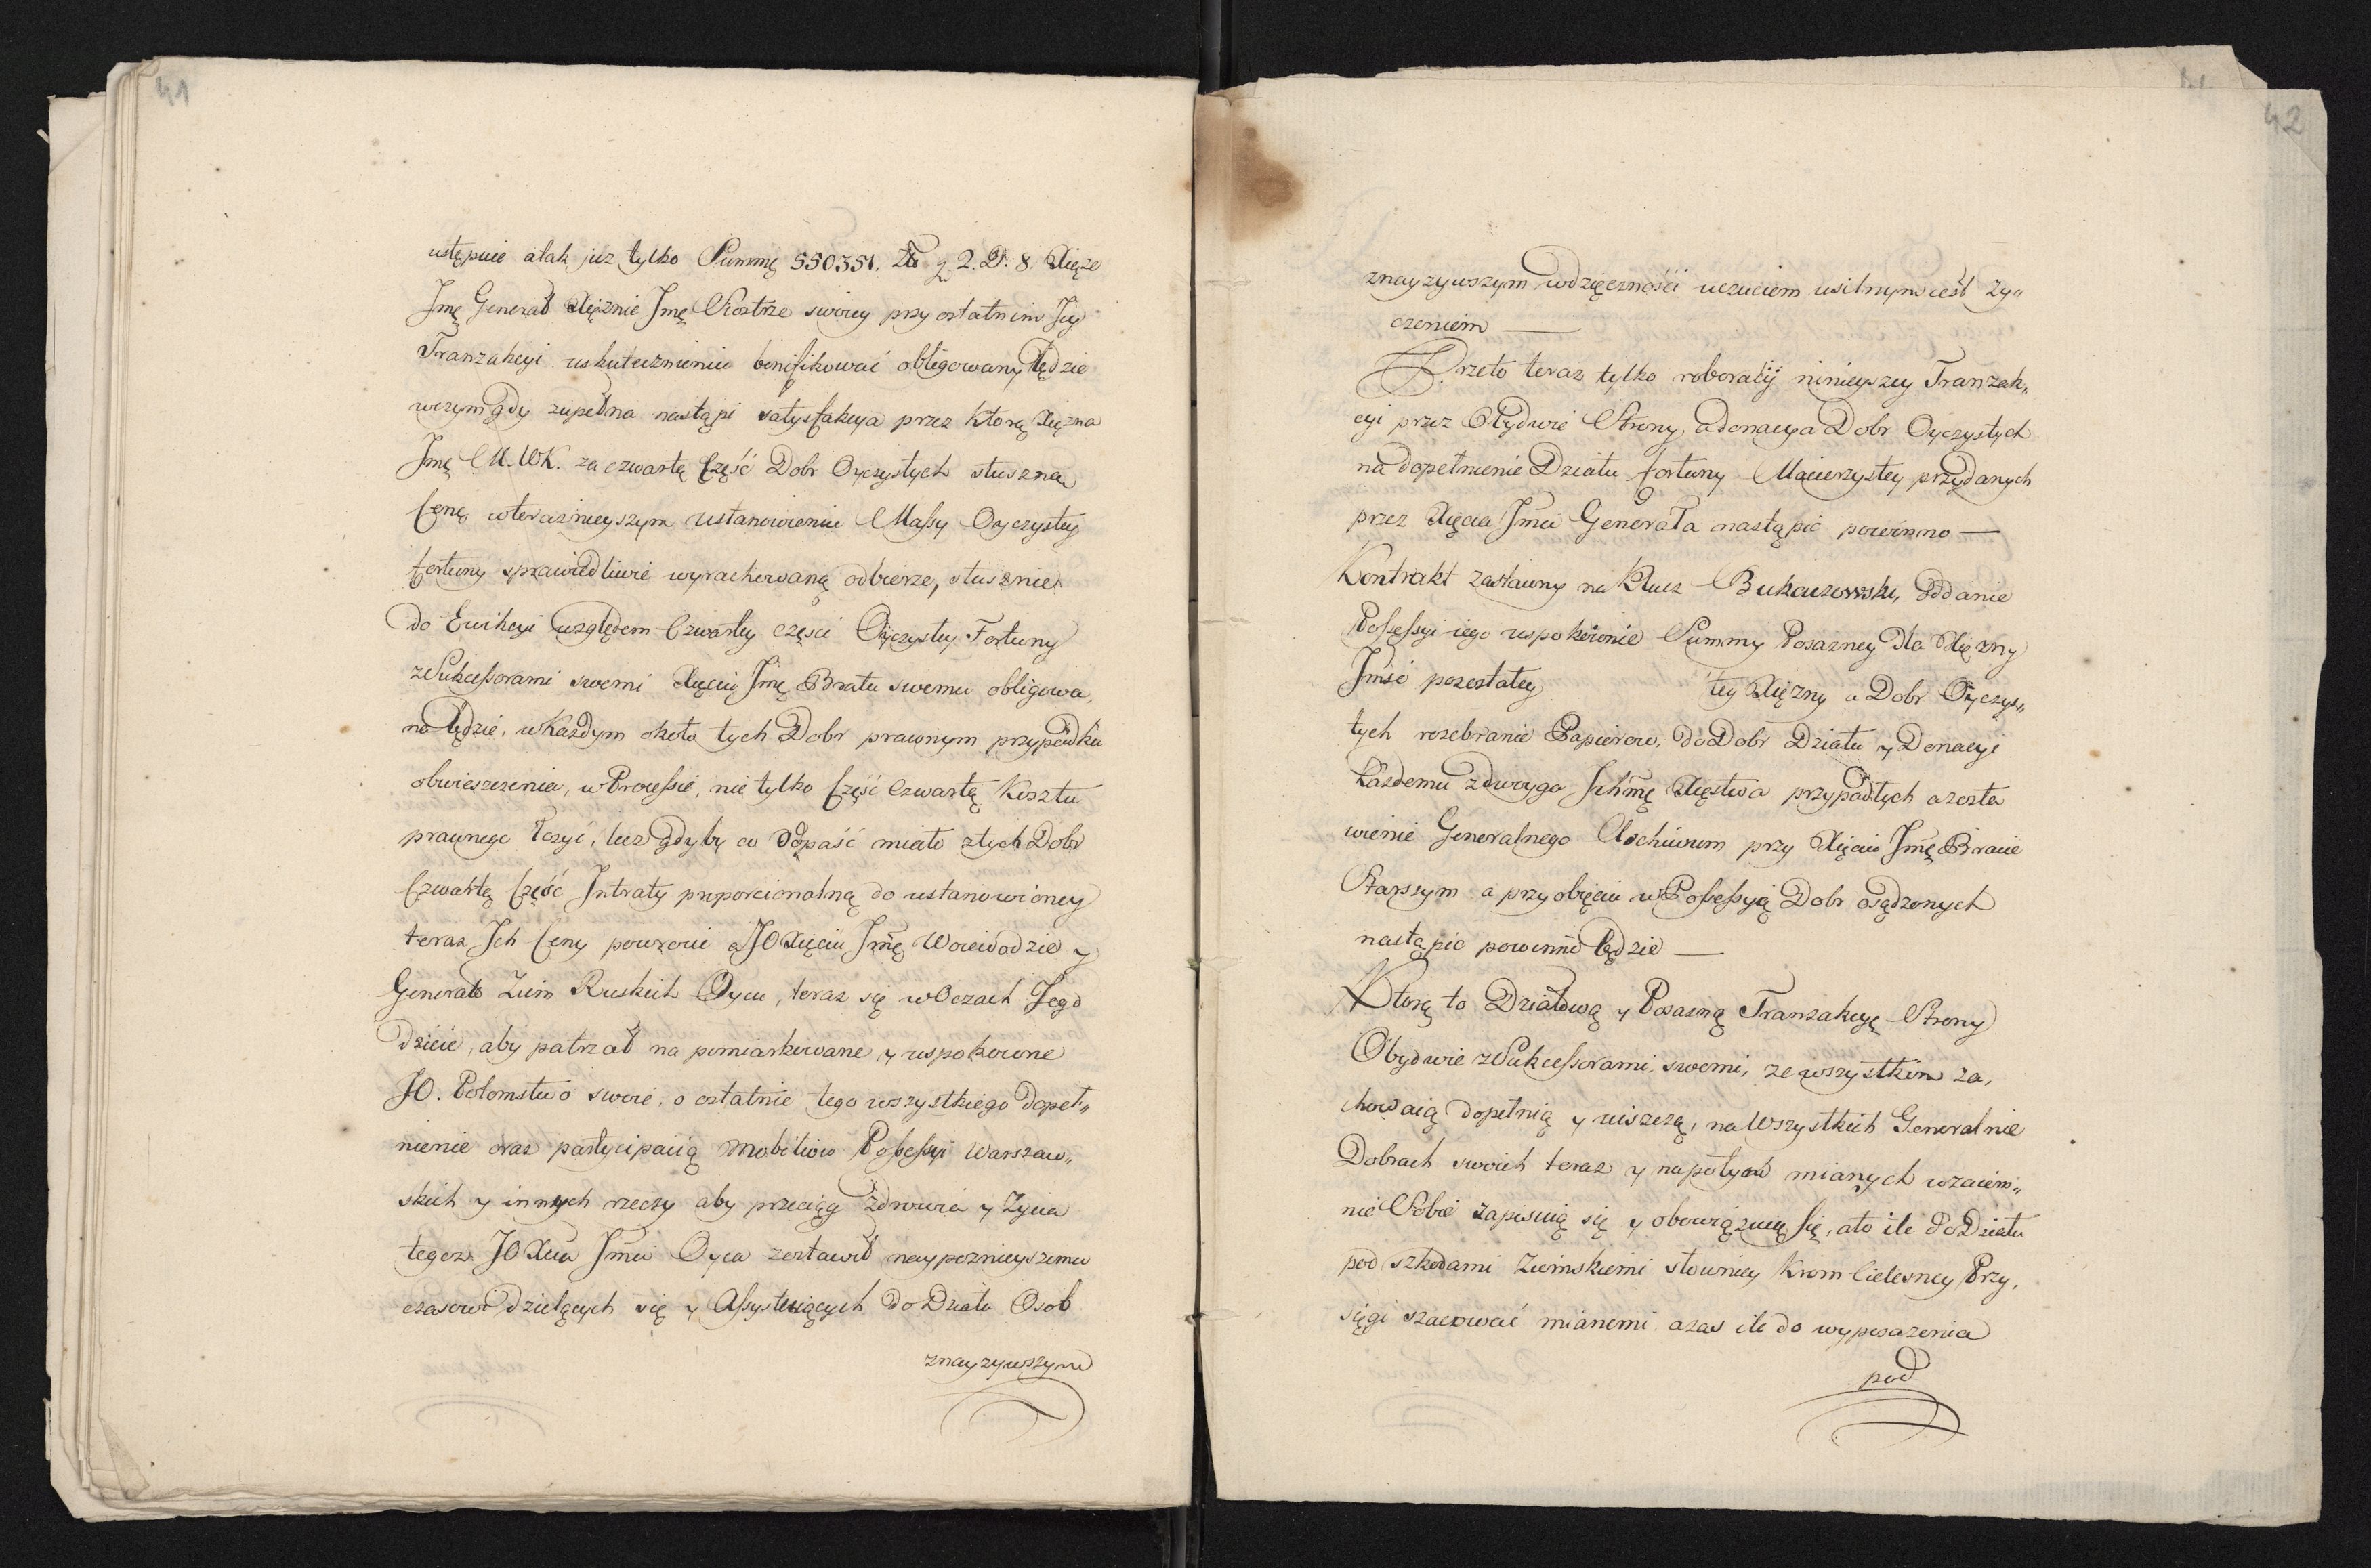 41
ustępuie atak juz tylko Summę 550351. Zł g 2. D: 8. Xiąże
Jmę Generał Xiężnie Jmę Siostrze swoiey przy ostatnim Jey
Tranzakcyi uskutecznieniu bonifikować obligowany będzie
wczym gdy zupełna nastąpi satysfakcya przez którą Xiężna
Jmę M. WK. za czwartą Część Dobr Oyczystych słuszną
Cenę wteraznieyszym ustanowieniu Massy Oyczystey
fortuny sprawiedliwie wyrachowaną odbierze, słusznie
do Ewikcyi względem Czwartey części Oyczystey Fortuny
zSukcessorami swemi Xięciu Jmę Bratu swemu obligowa,
na będzie, wKażdym około tych Dobr prawnym przypadku
obwieszczenia, wProcessie, nie tylko Część Czwartą Kosztu
prawnego łożyć, lecz gdyby co odpaść miało ztych Dobr
Czwartą Część Jntraty proporcionalną do ustanowioney
teraz Jch Ceny powrócić a JO Xięciu Jmę Woiewodzie y
Generał Ziem Ruskich Oycu, teraz się wOczach Jego
dzieie, aby patrzał na pomiarkowane y uspokoione
JO. Potomstwo swoie, o ostatnie tego wszystkiego dopeł„
nienie oraz partycipacią mobiliow Possessyi Warszaw„
skich y innych rzeczy aby przeciąg Zdrowia y Zycia
tegoz JO Xcia Jmci Oyca zostawił naypoznieyszemu
czasowi dzielących się y Assystuiących do Działu Osob
znayzywszym
42
znayzywszym wdzięczności uczuciem usilnym iest zy„
czeniem —
Przeto teraz tylko roboratij ninieyszey Tranzak„
cyi przez Obydwie Strony, adonacya Dobr Oyczystych
na dopełnienie Działu fortuny Macierzystey przydanych
przez Xięcia Jmci Generała nastąpić powinno —
Kontrakt zastawny na Klucz Bukaczowski, Oddanie
Possessyi iego uspokoienie Summy Posazney dla Xiężny
Jmść pozostałey tey Xiężny a Dobr Oyczys„
tych rozebranie Papierow, do Dobr Działu y Donacyi
każdemu zdwoyga Jchmę Xięstwa przypadłych azosta
wienie Generalnego Archiwum przy Xięciu Jmę Bracie
Starszym a przy obięciu wPossessyią Dobr osądzonych
nastąpić powinno będzie —
Którę to Działową y Posazną Tranzakcyę Strony
Obydwie zSukcessorami swemi, ze wszystkim za,
chowaią dopełnią y uiszczą, na Wszystkich Generalnie
Dobrach swoich teraz y napotym mianych wzaiem„
nie Sobie zapisuią się y obowiązuią się, ato ile do Działu
pod szkodami Ziemskiemi słowniey krom Cielesney Przy,
sięgi szacować mianemi azas ile do wyposazenia
pod